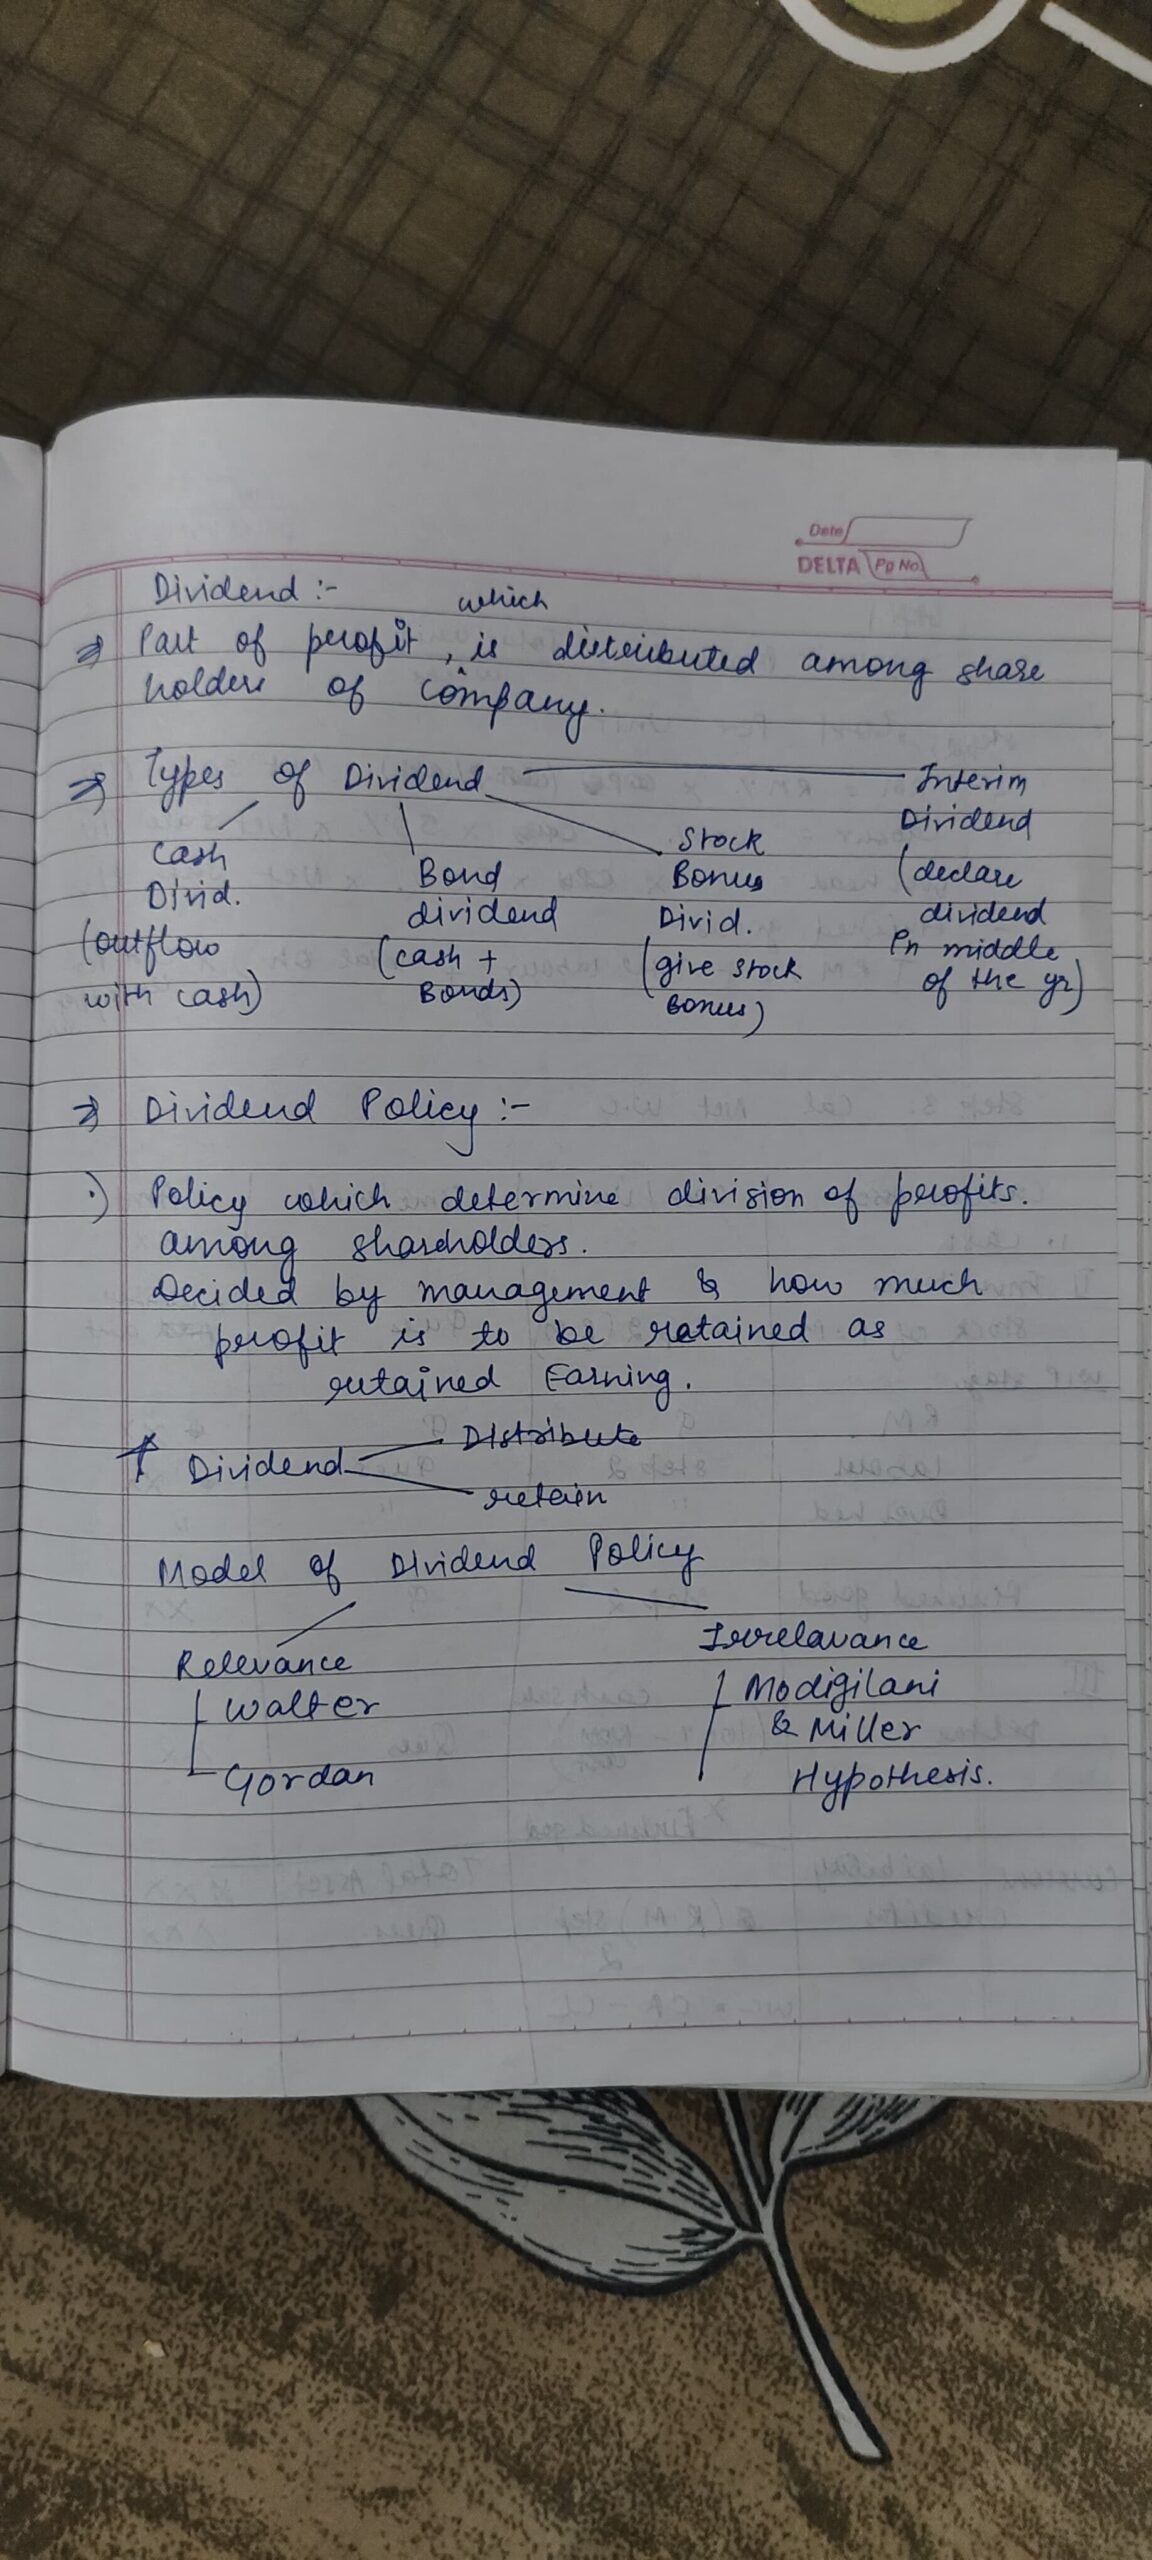 Date
DELTA Pg No
Dividend :-
which
⇒ Part of profit, is distributed among share
holders of company.
⇒ Types of Dividend
Interim
Dividend
(declare
dividend
In middle
of the yr)
Cash
Divid.
(outflow
with cash)
Bond
dividend
(cash +
Bonds)
Stock
Bonus
Divid.
(give stock
Bonus)
⇒ Dividend Policy :-
·) Policy which determine division of profits.
among shareholders.
Decided by management & how much
profit is to be retained as
retained Earning.
↑ Dividend
Distribute
retain
Model of Dividend Policy
Relevance
Walter
Gordan
Irrelavance
Modigilani
& Miller
Hypothesis.